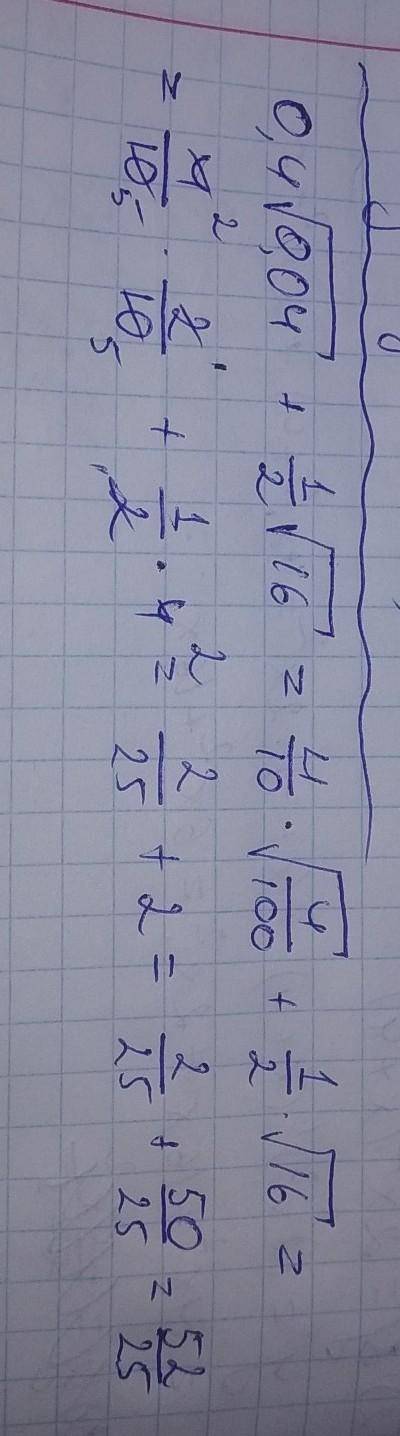 0,4√0,04 + 1/2 √16 = 4/10 · √4/100 + 1/2 · √16 =
= 4 2/10 5 · 2/10 5 + 1/2 1 · 4 2 = 2/25 + 2 = 2/25 + 50/25 = 52/25